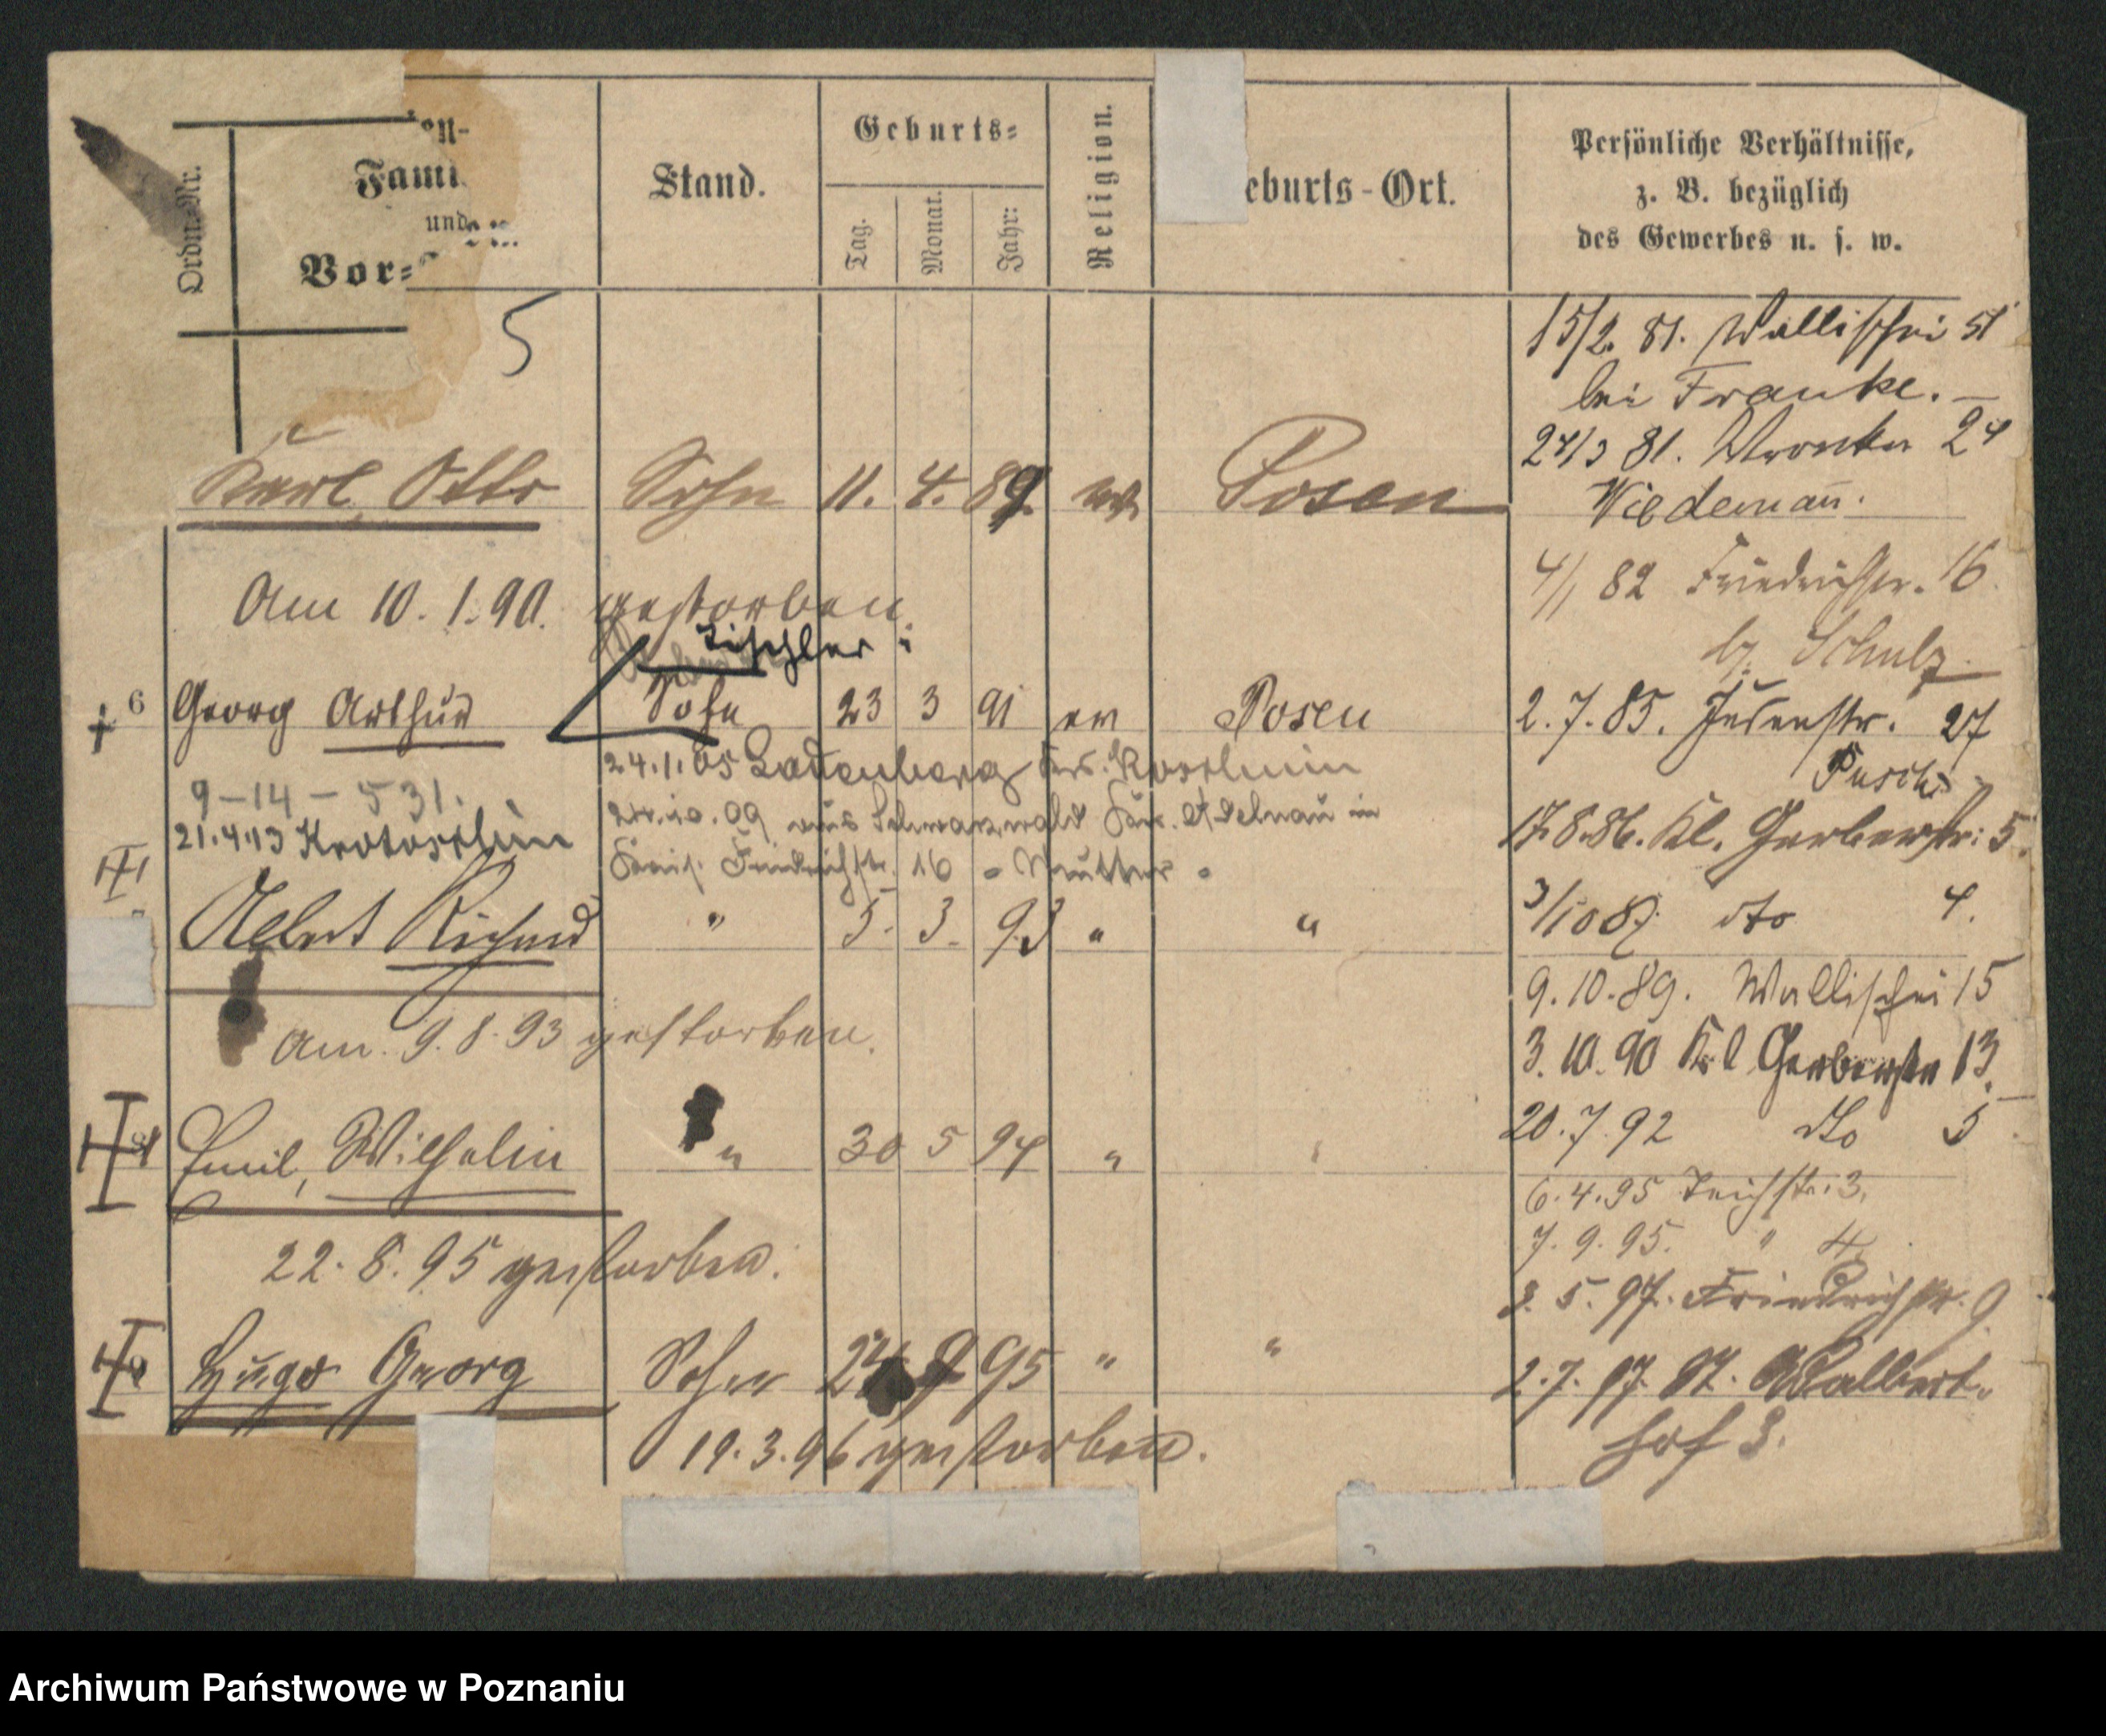 Ordn.-Nr.
Fami
und
Vor=
Stand.
Geburts=
Tag.
Monat.
Jahr:
Religion.
eburts-Ort.
Persönliche Verhältnisse,
z. B. bezüglich
des Gewerbes u. s. w.
5
15/2. 81. Wallischei 51
bei Franke. —
24/3 81. Wronker 24
Wiedemañ.
4/1 82 Friedrichstr. 16
b/. Schulz.
2. 7. 85. Judenstr. 27
Pusch
17.8.86. Kl. Gerberstr: 5.
3/10 87. dto 4.
9. 10. 89. Wallischei 15
3. 10. 90 Kl Gerberstr 13.
20. 7. 92 dto 5
6. 4. 95 Teichstr. 3.
7. 9. 95. " 4.
3. 5. 97. Friedrichstr. 9
2. 7. 97. St. Adalbert.
hof 3.
Karl, Otto Sohn 11. 4. 89. ev. Posen
Am 10. 1. 90. gestorben.
Tischler
6 Georg Arthur Sohn 23 3 91 ev Posen
24.1.05 Ladenberg Krs. Koschmin
9-14-531.
21.4.13 Krotoschin
24.10.09 aus Schwarzwald Kr. Adelnau in
Friedrichstr. 16 - Mutter -
Albert Richard " 5. 3. 93 " "
Am. 9. 8. 93 gestorben.
Emil, Wilhelm " 30 5 94 "
22. 8. 95 gestorben.
Hugo Georg Sohn 24 9 95 " "
19. 3. 96 gestorben.
Archiwum Państwowe w Poznaniu